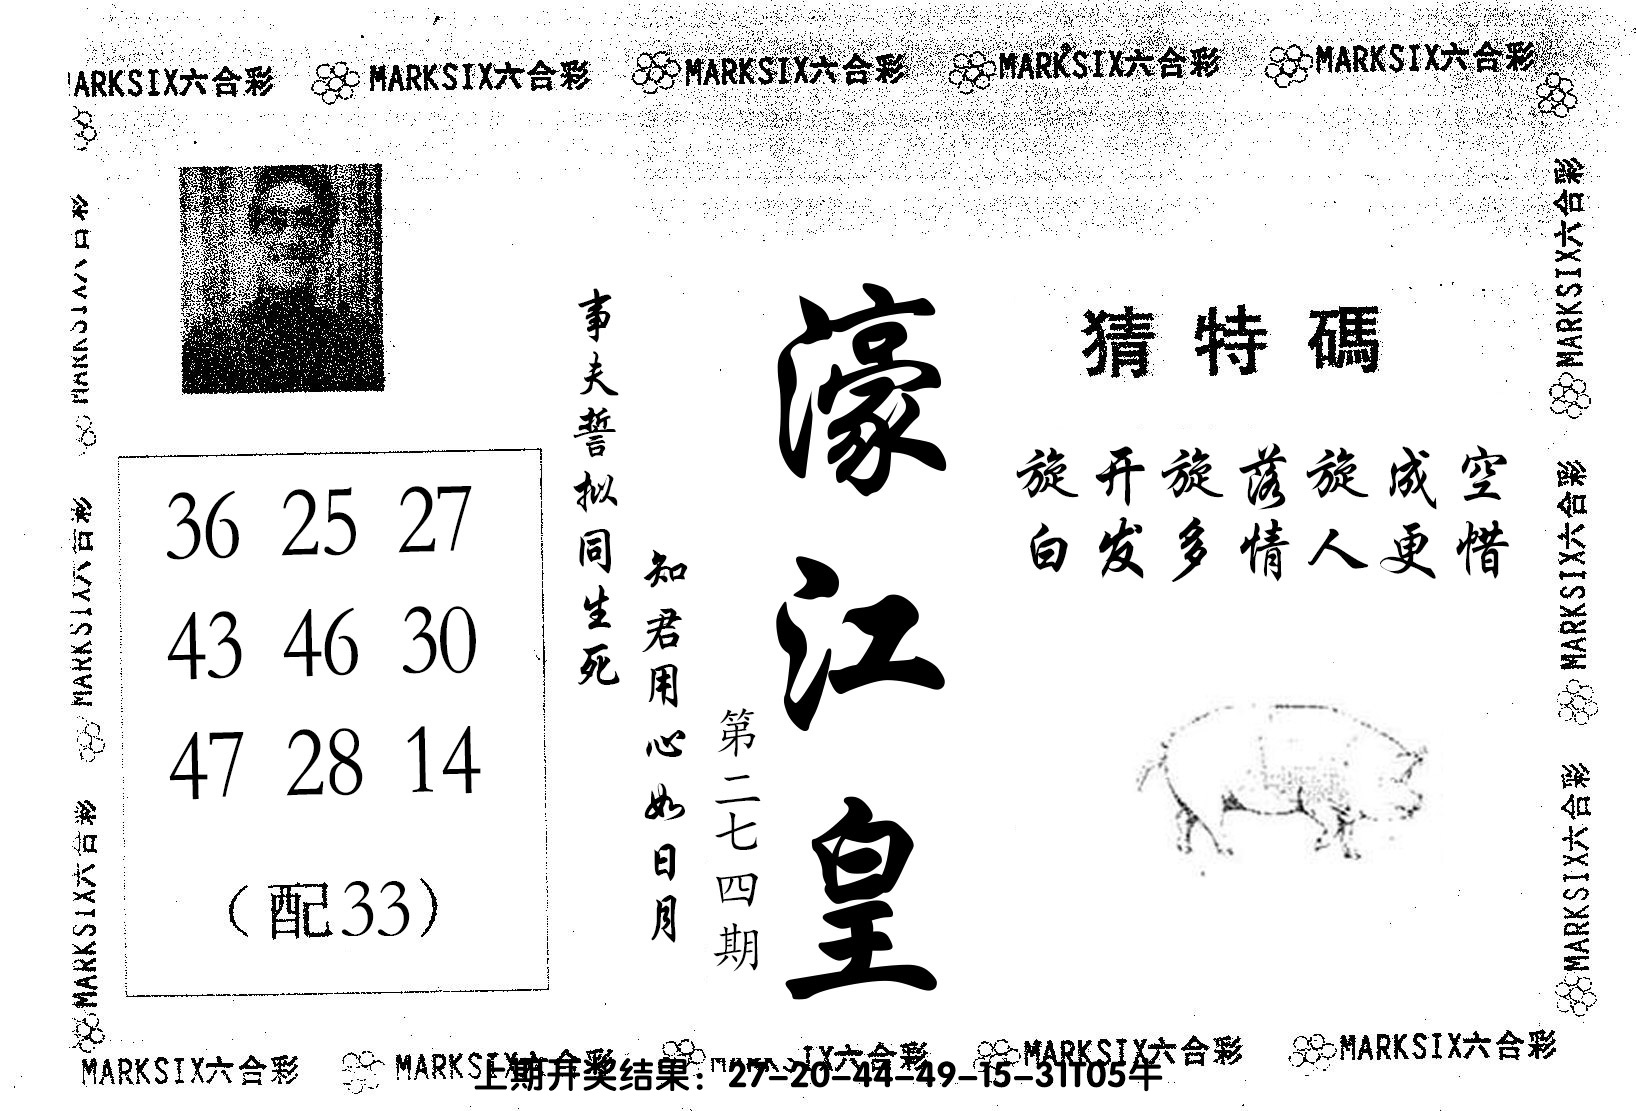 MARKSIX六合彩 MARKSIX六合彩 MARKSIX六合彩 MARKSIX六合彩 MARKSIX六合彩
猜特碼
旋开旋落旋成空
白发多情人更惜
濠江皇
第二七四期
知君用心如日月
事夫誓拟同生死
36 25 27
43 46 30
47 28 14
（配33）
MARKSIX六合彩
MARKSIX六合彩
MARKSIX六合彩
MARKSIX六合彩
MARKSIX六合彩
MARKSIX六合彩
MARKSIX六合彩 MARKSIX六合彩 MARKSIX六合彩 MARKSIX六合彩
上期开奖结果：27-20-44-49-15-31T05牛